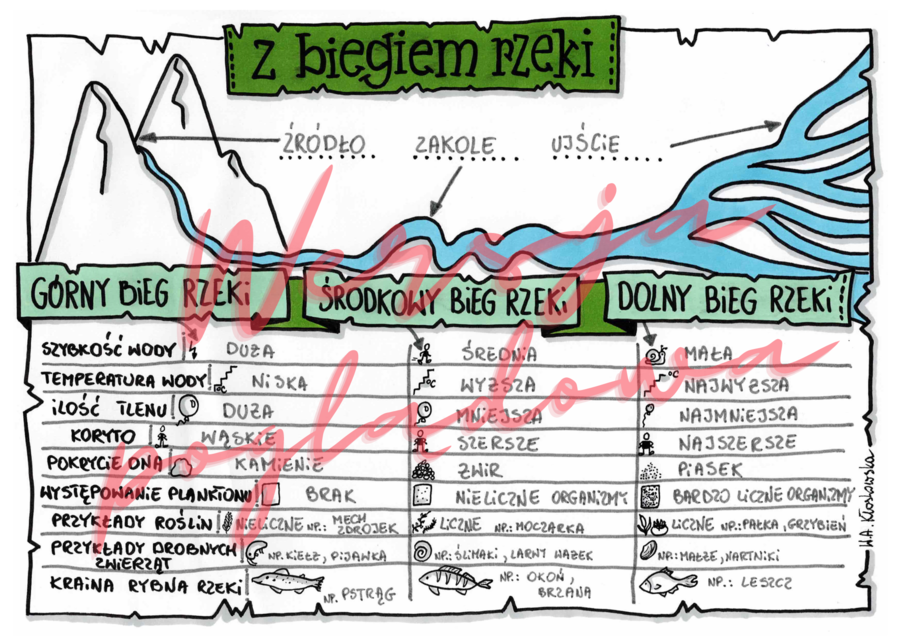 z biegiem rzeki
ŹRÓDŁO ZAKOLE UJŚCIE
Wersja
poglądowa
GÓRNY BIEG RZEKI ŚRODKOWY BIEG RZEKI DOLNY BIEG RZEKI
SZYBKOŚĆ WODY DUŻA ŚREDNIA MAŁA
TEMPERATURA WODY °C NISKA °C WYŻSZA °C NAJWYŻSZA
ILOŚĆ TLENU DUŻA MNIEJSZA NAJMNIEJSZA
KORYTO WĄSKIE SZERSZE NAJSZERSZE
POKRYCIE DNA KAMIENIE ŻWIR PIASEK
WYSTĘPOWANIE PLANKTONU BRAK NIELICZNE ORGANIZMY BARDZO LICZNE ORGANIZMY
PRZYKŁADY ROŚLIN NIELICZNE NP.: MECH ZDROJEK LICZNE NP.: MOCZARKA LICZNE NP.: PAŁKA, GRZYBIEŃ
PRZYKŁADY DROBNYCH ZWIERZĄT NP. KIEŁŻ, PIJAWKA NP.: ŚLIMAKI, LARWY WAŻEK NP.: MAŁŻE, NARTNIKI
KRAINA RYBNA RZEKI NP. PSTRĄG NP.: OKOŃ, BRZANA NP.: LESZCZ
W.A. Kłosowska